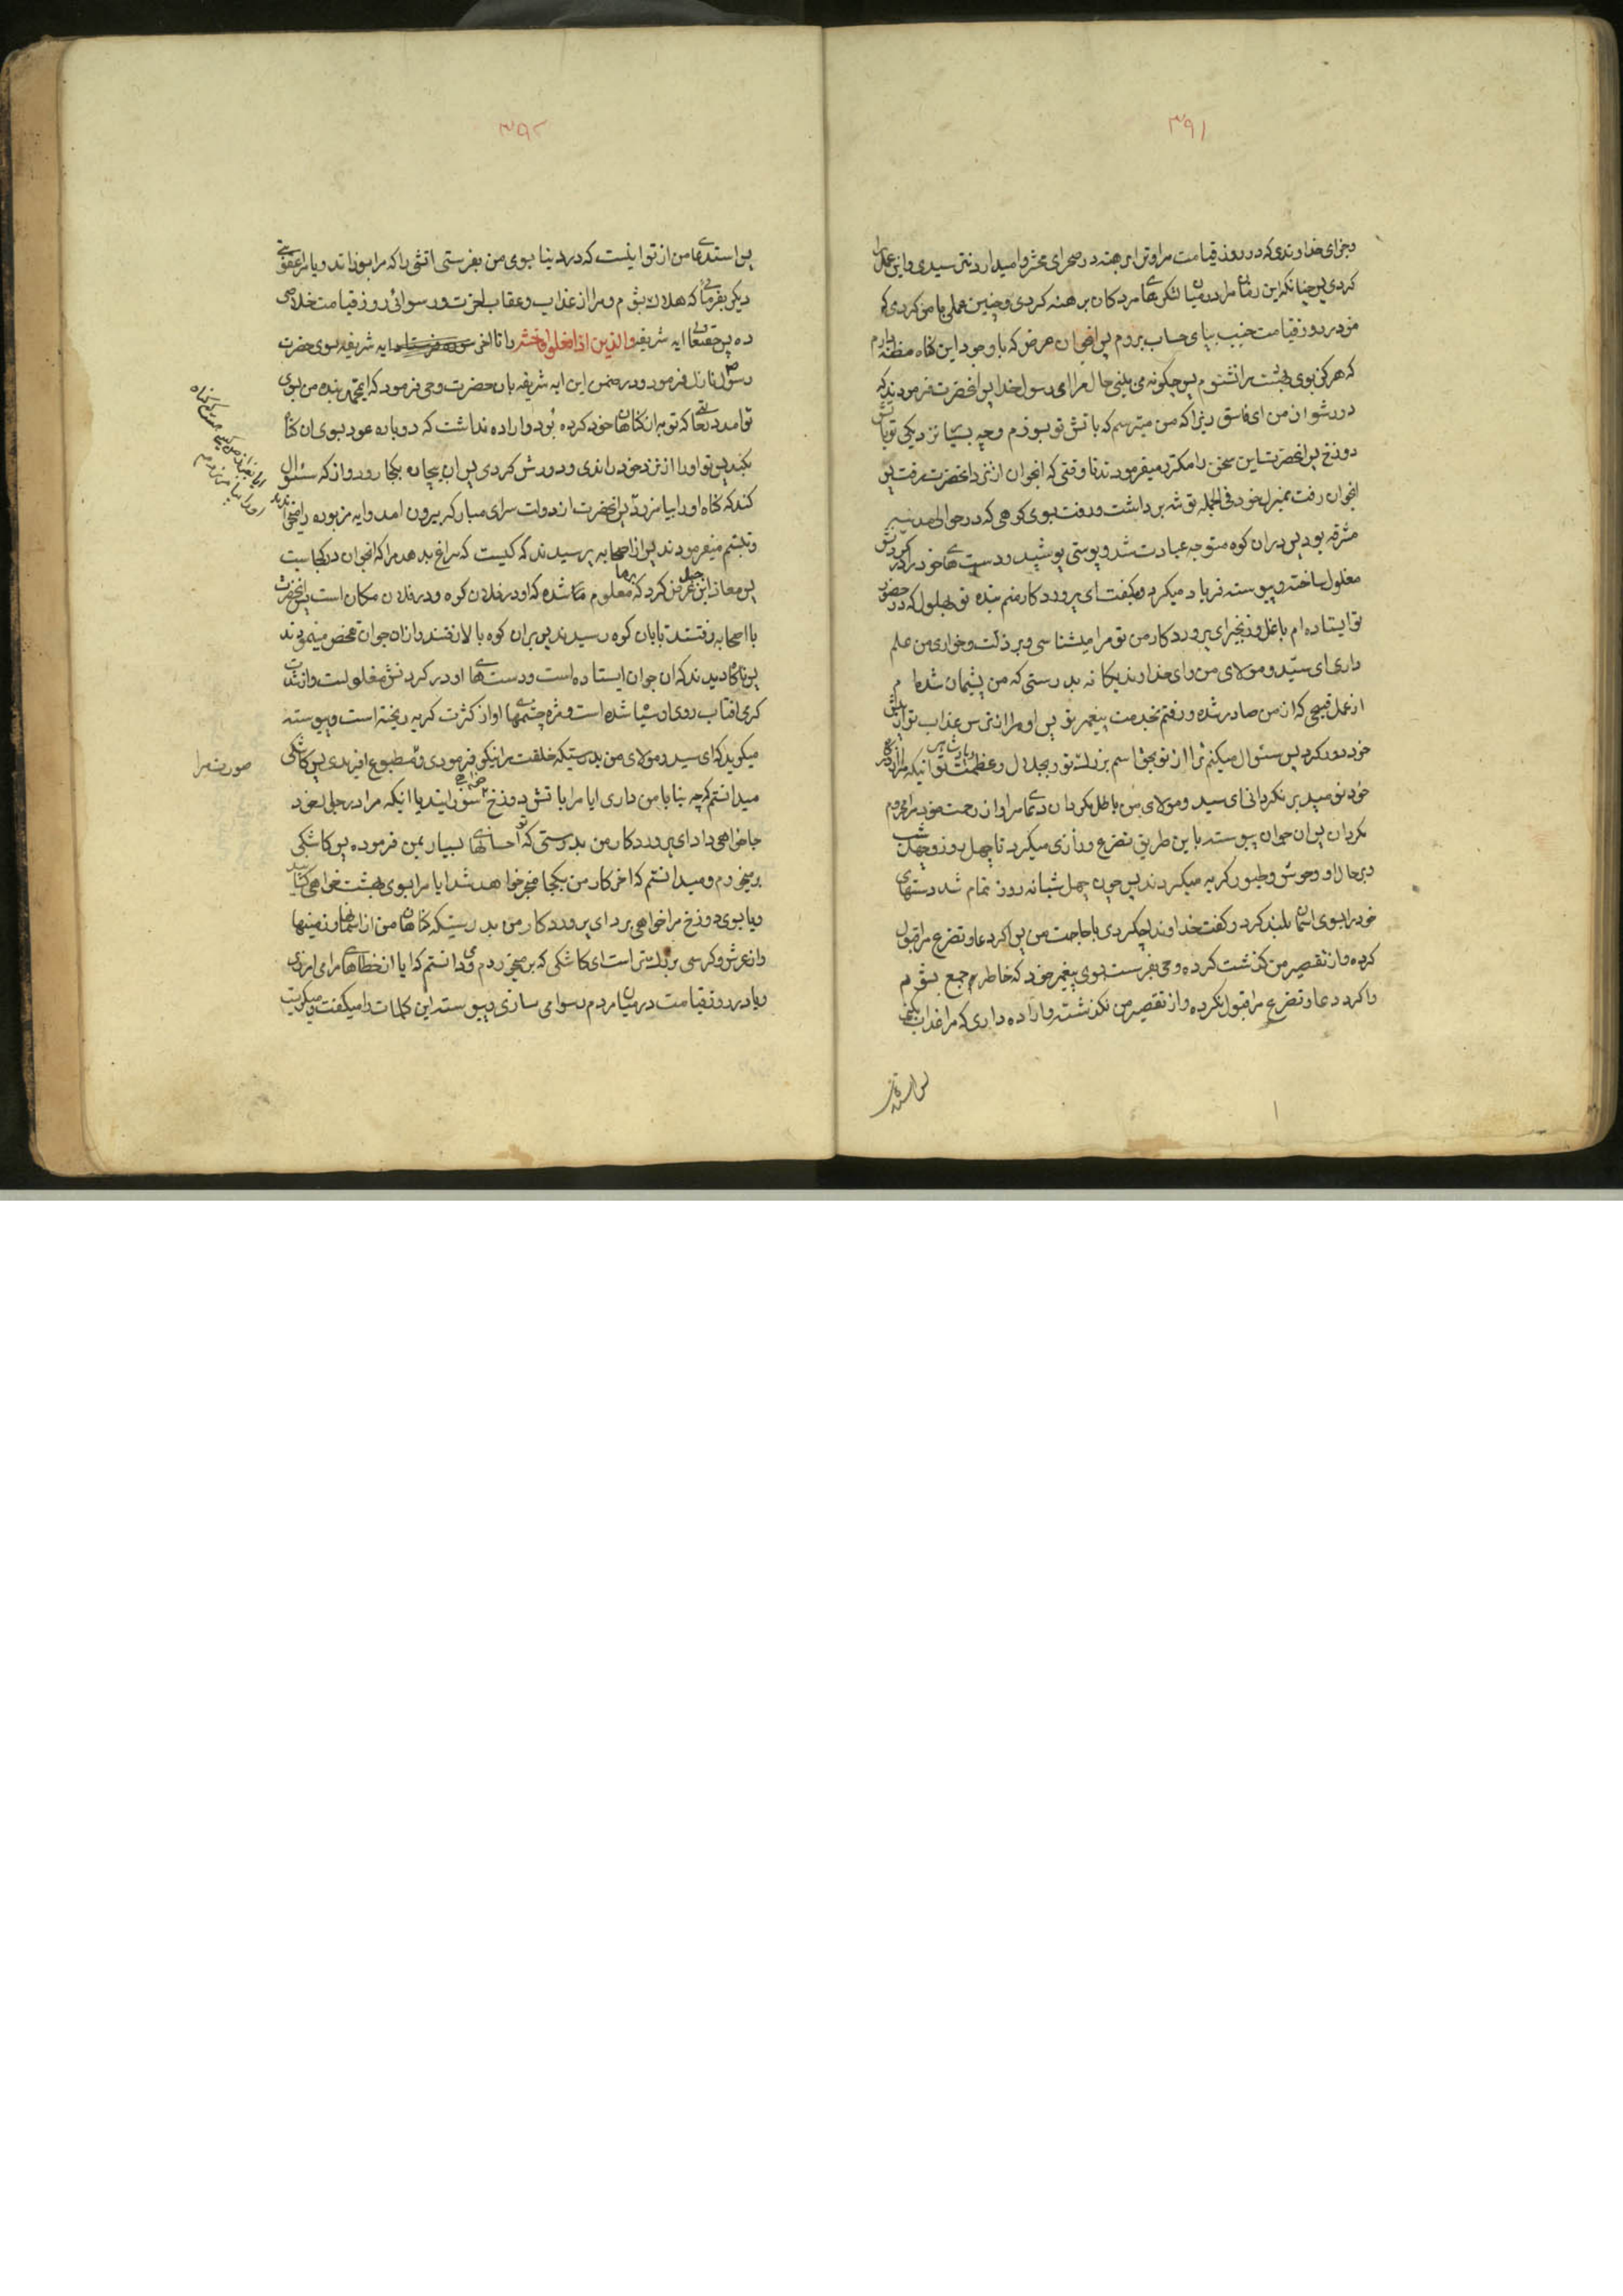 ۳۹۱
و جزای خداوندی که در روز قیامت مرا و ترا برهنه در صحرای محشر وامیدارد نترسیدی و این عمل را
کردی پس چنانکه این زمان مرا در میان لشکرهای مردکان برهنه کردی و چنین عملی با من کردی که
من در روز قیامت جنب بپای حساب بروم پس انجوان عرض که با وجود این کناه مظنه دارم
که هرکز بوی بهشت را نشنوم پس چکونه می بینی حال مرا ای رسول خدا پس انحضرت فرمودند که
دور شو از من ای فاسق زیرا که من میترسم که باتش تو بسوزم و چه بسیار نزدیکی تو باتش
دوزخ پس انحضرت این سخن را مکرر میفرمودند تا وقتی که انجوان از نزد انحضرت رفت پس
انجوان رفت بمنزل خود فی الجمله توشه برداشت و رفت بسوی کوهی که در حوالی مدینه
مشرفه بود پس در ان کوه متوجه عبادت شد و پوستی پوشید و دستهای خود را در کردنش
مغلول ساخته و پیوسته فریاد میکرد و میکفت ای پروردکار منم بنده تو بهلول که در حضور
تو ایستاده ام با غل و زنجیر ای پروردکار من تو مرا میشناسی و بر ذلت و خواری من علم
داری ای سید و مولای من و ای خداوند یکانه بدرستی که من پشیمان شده ام
از عمل قبیحی که از من صادر شده و رفتم بخدمت پیغمبر تو پس او مرا از ترس عذاب تو از پیش
خود دور کرد پس سئوال میکنم ترا از تو بحق اسم بزرک تو و بجلال و عظمت تو اینکه مرا از درکاه
خود نومید بر نکردانی ای سید و مولای من باطل مکردان دعای مرا و از رحمت خود مرا محروم
مکردان پس ان جوان پیوسته باین طریق تضرع و زاری میکرد تا چهل روز و چهل شب
و بر حال او وحوش و طیور کریه میکردند پس چون چهل شبانه روز تمام شد دستهای
خود را بسوی اسمان بلند کرد و کفت خداوندا چکردی با حاجت من پس اکر دعا و تضرع مرا قبول
کرده و از تقصیر من کذشت کرده وحی بفرست بسوی پیغمبر خود که خاطرم جمع بشود
و اکر دعا و تضرع مرا قبول نکرده و از تقصیر من نکذشته و اراده داری که مرا عذاب بکنی
پس استدعای
۳۹۲
پس استدعای من از تو اینست که در دنیا بسوی من بفرستی اتشی را که مرا بسوزاند و یا مرا عقوبتی
دیکر بفرمائی که هلاک بشوم و مرا از عذاب و عقاب اخرت و رسوائی روز قیامت خلاصی
ده پس حقتعالی ایه شریفه والذین اذا فعلوا فاحشه را تا اخر ایه شریفه بسوی حضرت
رسول نازل فرمود و در ضمن این ایه شریفه بان حضرت وحی فرمود که ایمحمد بنده من بسوی
تو امد در حالتی که توبه از کناهان خود کرده بود و اراده نداشت که دوباره عود بسوی ان کناه
بکند پس تو او را از نزد خود راندی و دورش کردی پس ان بیچاره بکجا رود و از که سئوال
کند که کناه او را بیامرزد پس انحضرت از دولت سرای مبارکه بیرون امد و ایه مزبوره را میخواندند
و تبسم میفرمودند پس از اصحابه پرسیدند که کیست که سراغ بدهد مرا که انجوان در کجاست
پس معاذ ابن جبل عرض کرد که بر ما معلوم شده که او در فلان کوه و در فلان مکان است پس انحضرت
با اصحابه رفتند تا بان کوه رسیدند پس بر ان کوه بالا رفتند و از ان جوان تفحص مینمودند
پس ناکاه دیدند که ان جوان ایستاده است و دستهای او در کردنش مغلولست و از شدت
کرمی افتاب روی او سیاه شده است و مژه چشمهای او از کثرت کریه ریخته است و پیوسته
میکوید که ای سید و مولای من بدرستیکه خلقت مرا نیکو فرمودی و مطبوع افریدی پس کاشکی
صورت مرا
میدانستم که چه بنا با من داری ایا مرا باتش دوزخ خواهی سوزانید یا انیکه مرا در جوار خود
جا خواهی داد ای پروردکار من بدرستی که تو احسانهای بسیار بمن فرموده پس کاشکی
برمیخوردم و میدانستم که اخر کار من بکجا منجر خواهد شد ایا مرا بسوی بهشت خواهی کشانید
و یا بسوی دوزخ مرا خواهی برد ای پروردکار من بدرستیکه کناهان من از اسمانها و زمینها
و از عرش و کرسی بزرکتر است ای کاشکی که برمیخوردم و میدانستم که ایا از خطاهای مرا می امرزی
و یا در روز قیامت در میان مردم رسوا می سازی و پیوسته این کلمات را میکفت و میکریست